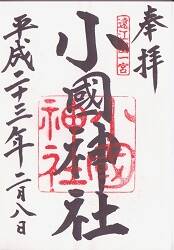 奉拝
遠江國一宮
小國神社
小國神社
平成二十三年二月八日